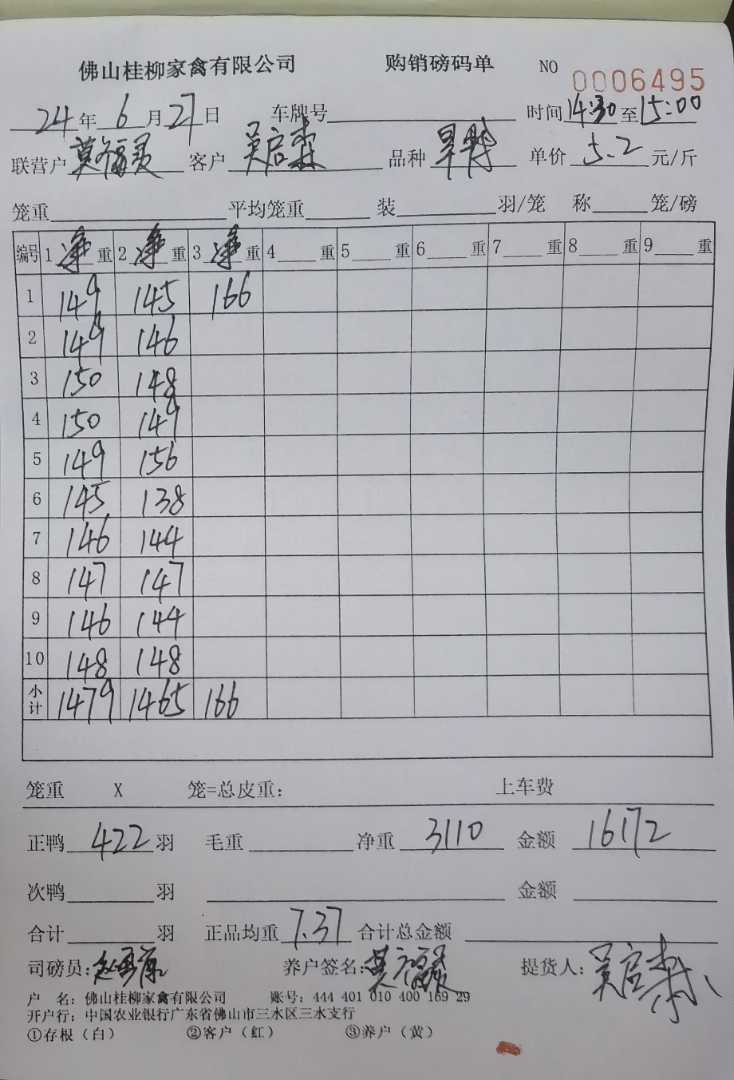 佛山桂柳家禽有限公司 购销磅码单 NO 0006495
24年6月27日 车牌号 时间14:30至15:00
联营户 莫福灵 客户 吴启森 品种 单价 5.2 元/斤
笼重 平均笼重 装 羽/笼 称 笼/磅
编号 1净重 2净重 3净重 4 重 5 重 6 重 7 重 8 重 9 重
1 149 145 166
2 149 146
3 150 148
4 150 149
5 149 156
6 145 138
7 146 144
8 147 147
9 146 144
10 148 148
小计 1479 1465 166
笼重 X 笼=总皮重: 上车费
正鸭 422 羽 毛重 净重 3110 金额 16172
次鸭 羽 金额
合计 羽 正品均重 7.37 合计总金额
司磅员: 养户签名: 莫福灵 提货人: 吴启森
户 名: 佛山桂柳家禽有限公司 账号: 444 401 010 400 169 29
开户行: 中国农业银行广东省佛山市三水区三水支行
①存根(白) ②客户(红) ③养户(黄)